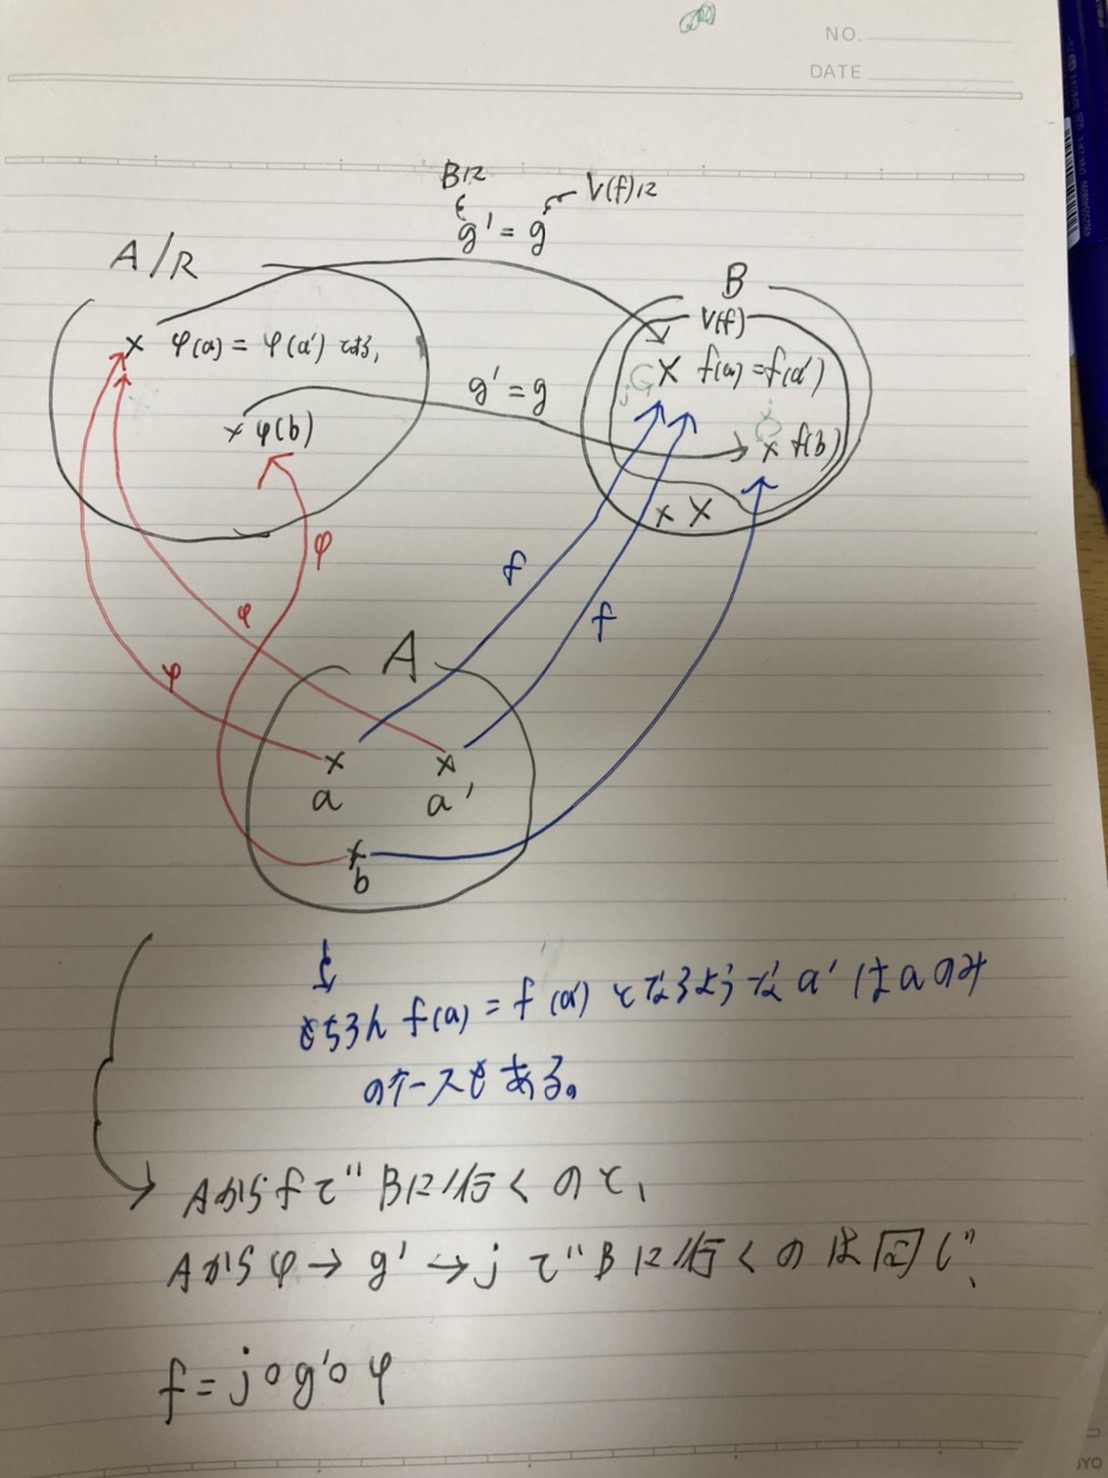 NO.
DATE
Bに
V(f)に
g' = g
A/R
B
V(f)
× φ(a) = φ(a') である,
j × f(a) = f(a')
g' = g
× φ(b)
j
× f(b)
× ×
φ
f
φ
f
φ
A
× ×
a a'
×
b
もちろん f(a) = f(a') となるような a' は a のみ
のケースもある。
Aからfで Bに行くのと、
Aから φ → g' → j で Bに行くのは同じ、
f = j ∘ g' ∘ φ